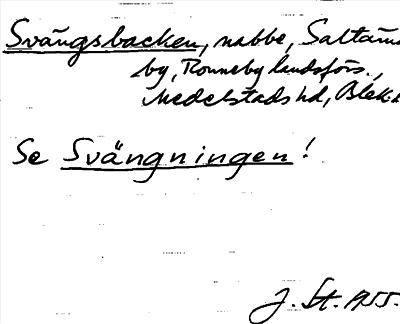 Svängsbacken, nabbe, Saltärna
by, Ronneby landsförs.,
Medelstads hd, Blek.
Se Svängningen!
J. St. 1955.